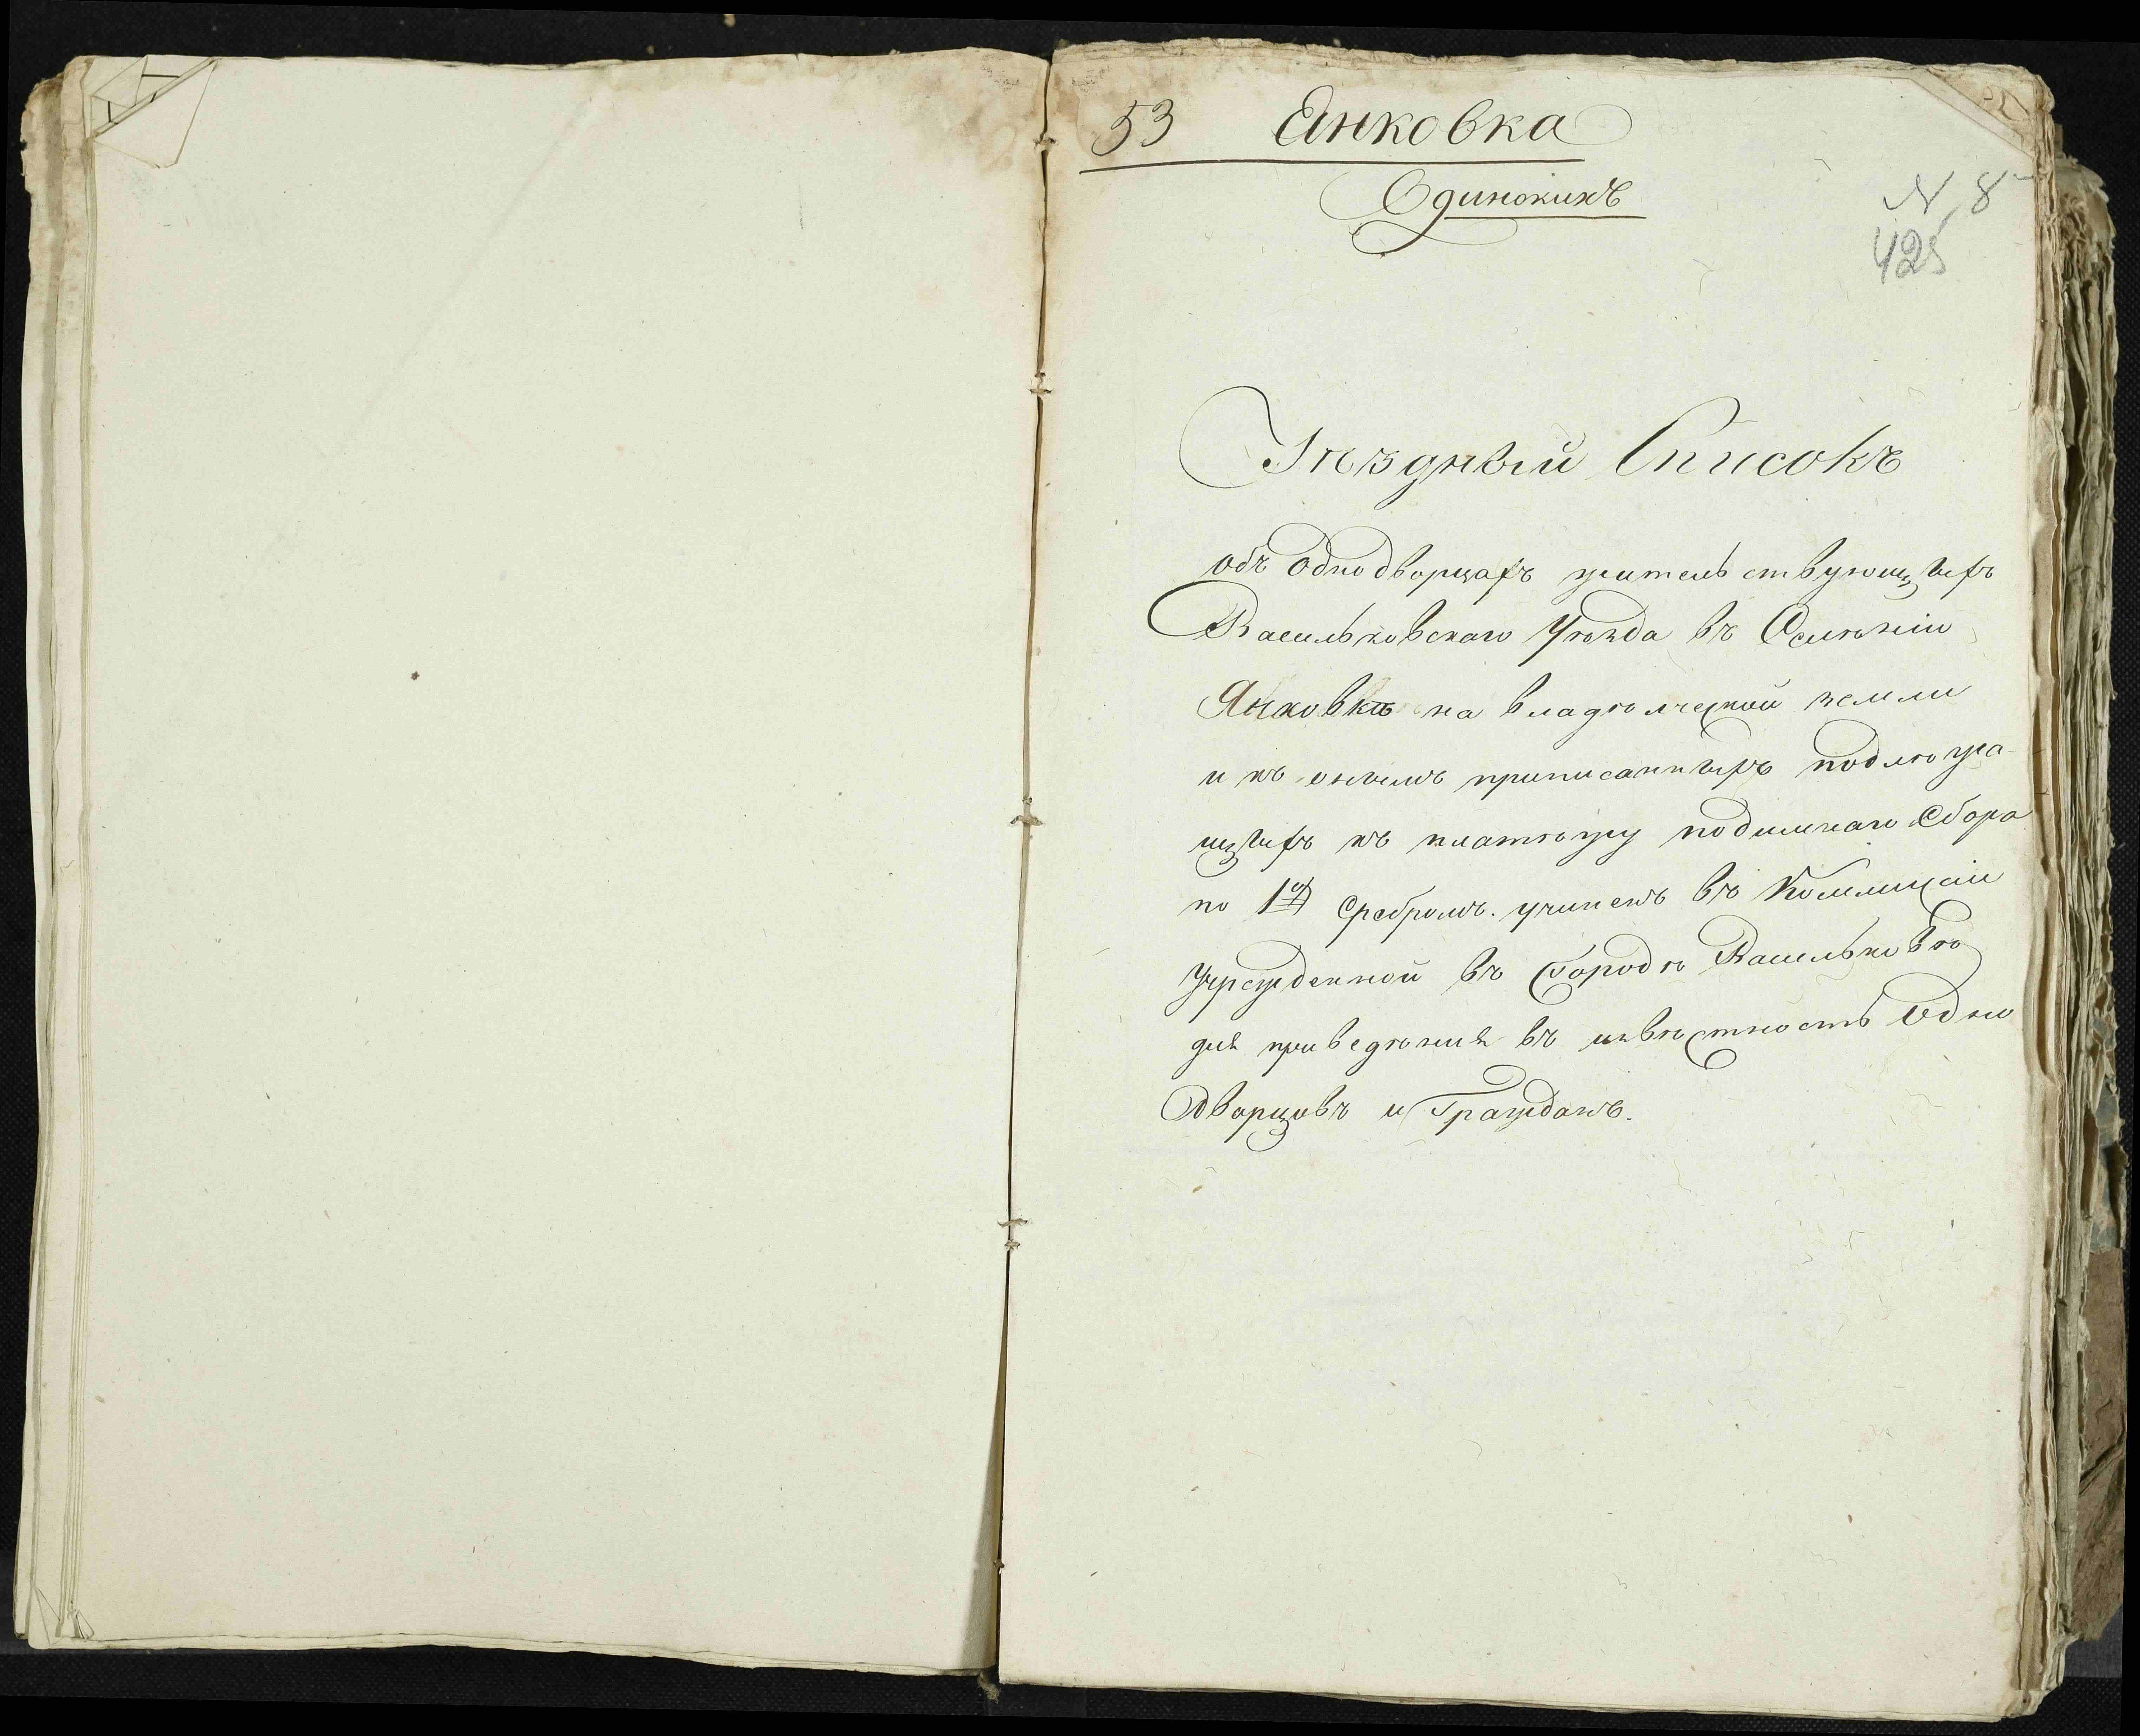 53 Янковка
Одинокихъ
N 8
425
Уѣздный Списокъ
объ Однодворцахъ жительствующихъ
Васильковскаго Уѣзда въ Селѣніи
Янковкѣ на владѣльческой земли
и къ онымъ приписанныхъ подлѣжа-
щихъ къ платѣжу подымнаго Сбора
по 1 Сребромъ. учиненъ въ Коммиціи
Учрежденной въ Городѣ Васильковѣ
для приведѣния въ извѣстность Одно
Дворцовъ и Гражданъ.